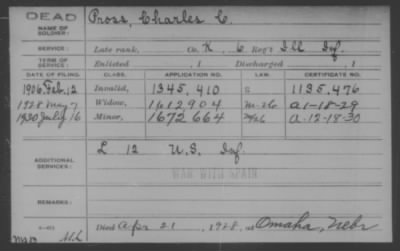 DEAD
NAME OF SOLDIER: Pross, Charles C.
SERVICE: Late rank, Co. K, 6 Reg't Ill Inf.
TERM OF SERVICE: Enlisted , 1 Discharged , 1
DATE OF FILING. CLASS. APPLICATION NO. LAW. CERTIFICATE NO.
1906 Feb. 12 Invalid, 1345,410 G 1135,476
1928 May 7 Widow, 1612904 m-26 a-1-18-29
1930 July 16 Minor, 1672664 My26 a-12-18-30
ADDITIONAL SERVICES: L 12 U.S. Inf.
WAR WITH SPAIN
REMARKS:
Died Apr 21, 1928, at Omaha, Nebr